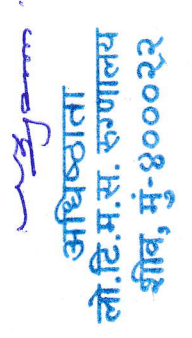 अधिष्ठाता
लो.टि.म.स. रुग्णालय
शीव, मुं-४०००२२